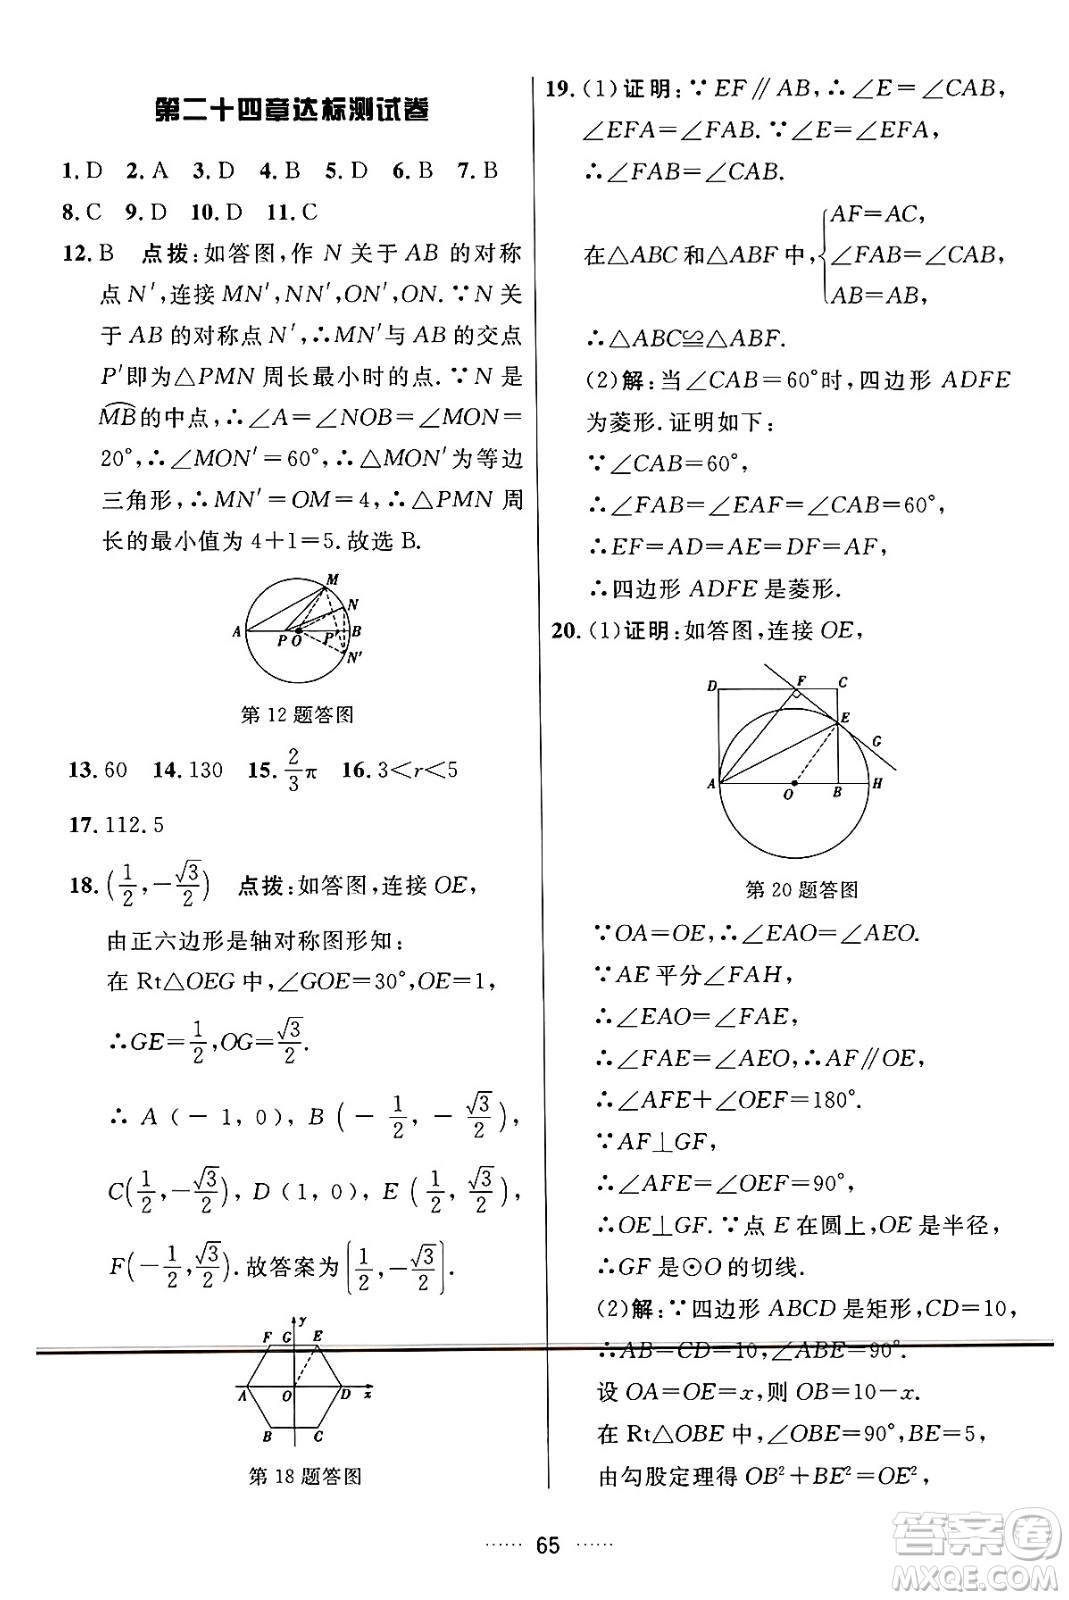 第二十四章达标测试卷
1. D 2. A 3. D 4. B 5. D 6. B 7. B
8. C 9. D 10. D 11. C
12. B 点拨:如答图,作 N 关于 AB 的对称
点 N′,连接 MN′,NN′,ON′,ON.∵N 关
于 AB 的对称点 N′,∴MN′与 AB 的交点
P′即为△PMN 周长最小时的点.∵N 是
M͡B的中点,∴∠A=∠NOB=∠MON=
20°,∴∠MON′=60°,∴△MON′为等边
三角形,∴MN′=OM=4,∴△PMN 周
长的最小值为 4+1=5.故选 B.
M
N
A P O P′ B
N′
第 12 题答图
13. 60 14. 130 15. 2/3 π 16. 3<r<5
17. 112. 5
18. (1/2,-√3/2) 点拨:如答图,连接 OE,
由正六边形是轴对称图形知:
在 Rt△OEG 中,∠GOE=30°,OE=1,
∴GE=1/2,OG=√3/2.
∴ A(-1,0), B(-1/2,-√3/2),
C(1/2,-√3/2), D(1,0), E(1/2,√3/2),
F(-1/2,√3/2).故答案为(1/2,-√3/2).
y
F G E
A O D x
B C
第 18 题答图
19. (1)证明:∵EF∥AB,∴∠E=∠CAB,
∠EFA=∠FAB.∵∠E=∠EFA,
∴∠FAB=∠CAB.
在△ABC 和△ABF 中,{AF=AC,
∠FAB=∠CAB,
AB=AB,
∴△ABC≌△ABF.
(2)解:当∠CAB=60°时,四边形 ADFE
为菱形.证明如下:
∵∠CAB=60°,
∴∠FAB=∠EAF=∠CAB=60°,
∴EF=AD=AE=DF=AF,
∴四边形 ADFE 是菱形.
20. (1)证明:如答图,连接 OE,
D F C
E
G
A O B H
第 20 题答图
∵OA=OE,∴∠EAO=∠AEO.
∵AE 平分∠FAH,
∴∠EAO=∠FAE,
∴∠FAE=∠AEO,∴AF∥OE,
∴∠AFE+∠OEF=180°.
∵AF⊥GF,
∴∠AFE=∠OEF=90°,
∴OE⊥GF.∵点 E 在圆上,OE 是半径,
∴GF 是⊙O 的切线.
(2)解:∵四边形 ABCD 是矩形,CD=10,
∴AB=CD=10,∠ABE=90°.
设 OA=OE=x,则 OB=10-x.
在 Rt△OBE 中,∠OBE=90°,BE=5,
由勾股定理得 OB²+BE²=OE²,
65
答案卷
MXQE.COM